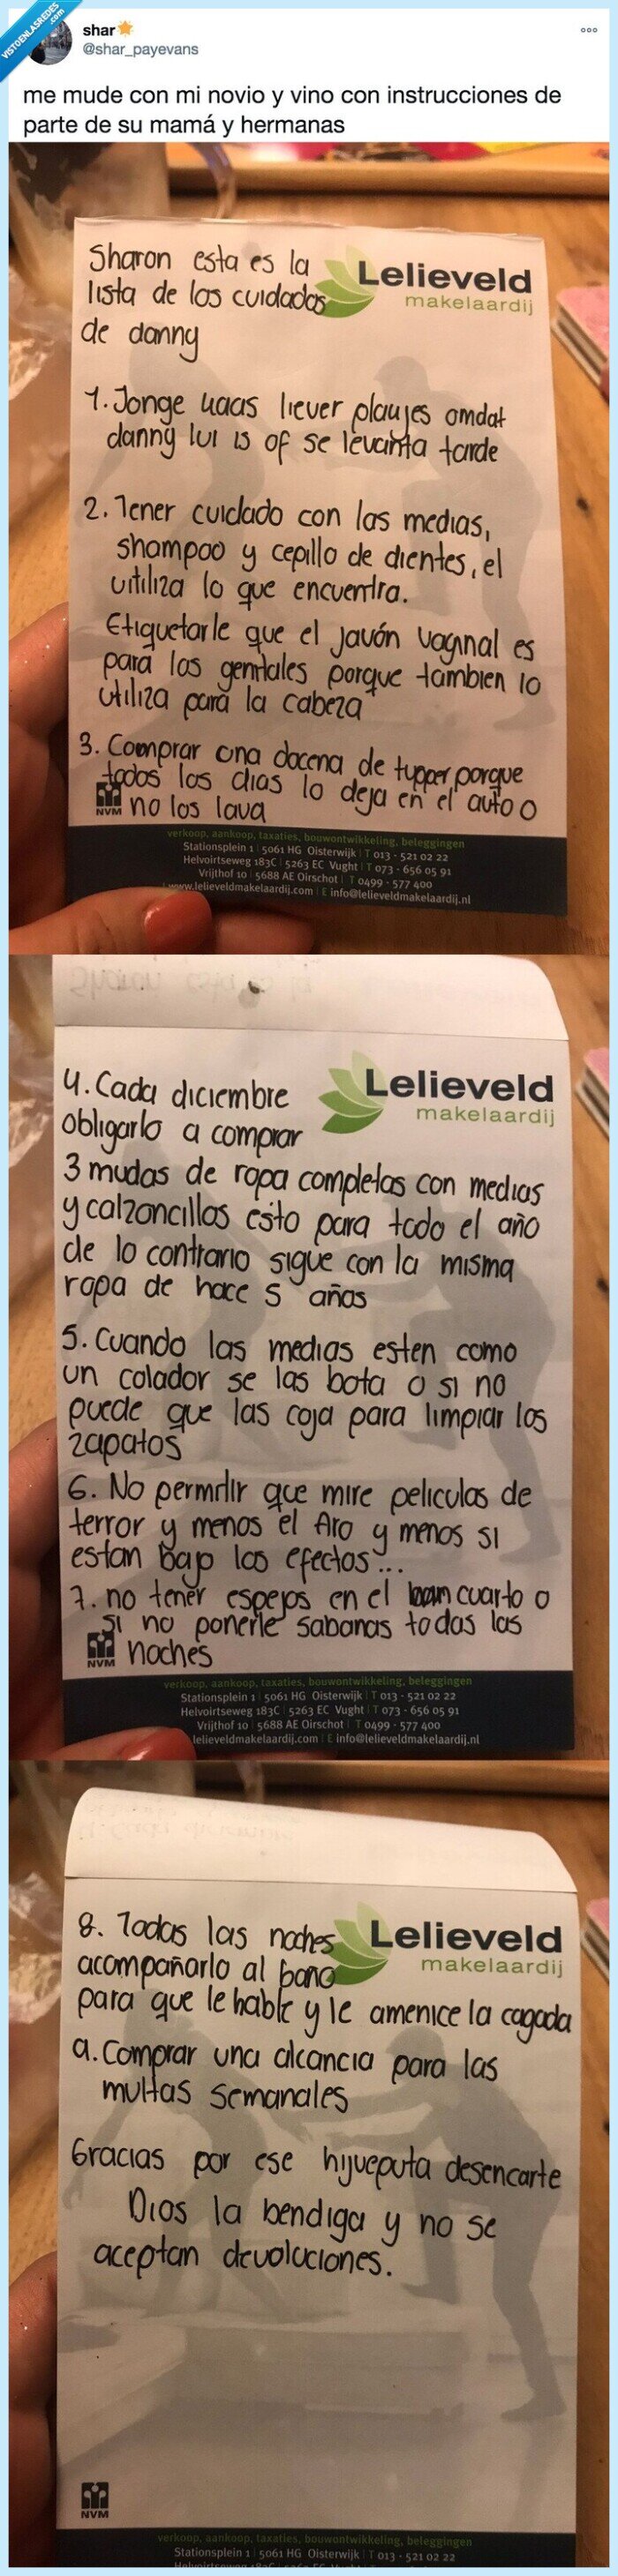 VISTOENLASREDES
.com
shar
@shar_payevans
me mude con mi novio y vino con instrucciones de
parte de su mamá y hermanas
Sharon esta es la
lista de los cuidados
de danny
Lelieveld
makelaardij
1. Jonge liever omdat
danny lui is of se levanta tarde
2. Tener cuidado con las medias,
shampoo y cepillo de dientes, el
utiliza lo que encuentra.
Etiquetarle que el javón vaginal es
para los genitales porque tambien lo
utiliza para la cabeza
3. Comprar una docena de tupper porque
todos los dias lo deja en el auto o
no los lava
NVM
verkoop, aankoop, taxaties, bouwontwikkeling, beleggingen
Stationsplein 1 | 5061 HG Oisterwijk | T 013 - 521 02 22
Helvoirtseweg 183C | 5263 EC Vught | T 073 - 656 05 91
Vrijthof 10 | 5688 AE Oirschot | T 0499 - 577 400
www.lelieveldmakelaardij.com | E info@lelieveldmakelaardij.nl
Sharon esta es la
4. Cada diciembre
obligarlo a comprar
Lelieveld
makelaardij
3 mudas de ropa completas con medias
y calzoncillos esto para todo el año
de lo contrario sigue con la misma
ropa de hace 5 años
5. Cuando las medias esten como
un colador se las bota o si no
puede que las coja para limpiar los
zapatos
6. No permitir que mire peliculas de
terror y menos el Aro y menos si
estan bajo los efectos...
7. no tener espejos en el cuarto o
si no ponerle sabanas todas las
noches
NVM
verkoop, aankoop, taxaties, bouwontwikkeling, beleggingen
Stationsplein 1 | 5061 HG Oisterwijk | T 013 - 521 02 22
Helvoirtseweg 183C | 5263 EC Vught | T 073 - 656 05 91
Vrijthof 10 | 5688 AE Oirschot | T 0499 - 577 400
lelieveldmakelaardij.com | E info@lelieveldmakelaardij.nl
8. Todas las noches
acompañarlo al baño
Lelieveld
makelaardij
para que le hable y le amenice la cagada
9. Comprar una alcancia para las
multas semanales
Gracias por ese hijueputa desencarte
Dios la bendiga y no se
aceptan devoluciones.
NVM
verkoop, aankoop, taxaties, bouwontwikkeling, beleggingen
Stationsplein 1 | 5061 HG Oisterwijk | T 013 - 521 02 22